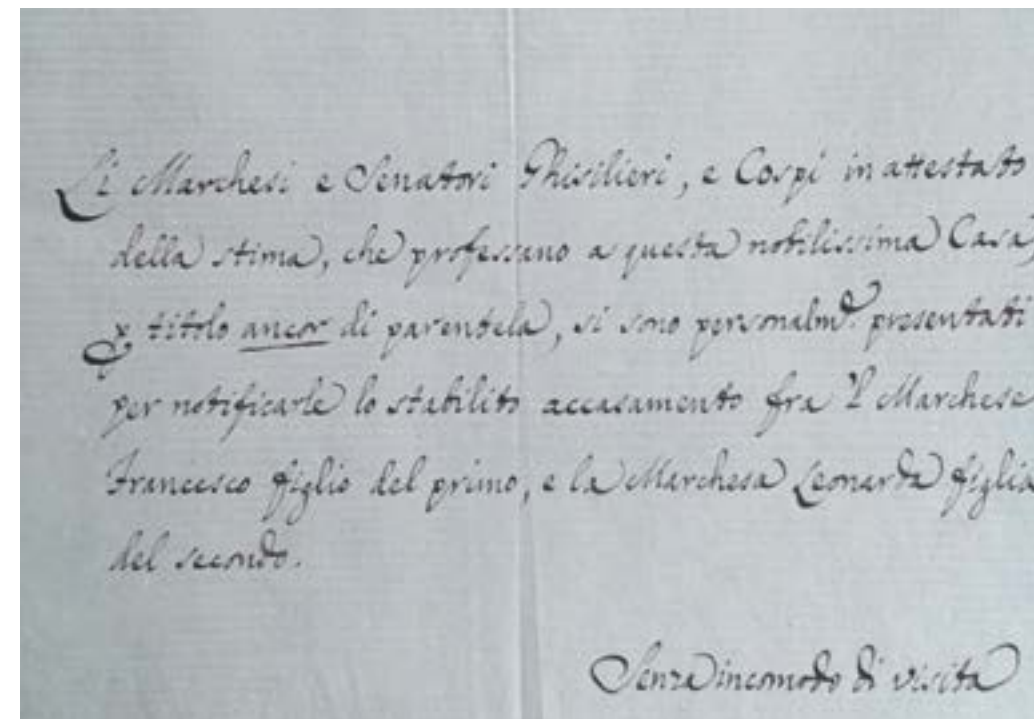 Li Marchesi e Senatori Ghisilieri, e Cospi in attestato
della stima, che professano a questa nobilissima Casa,
p titolo ancor di parentela, si sono personalm.e presentati
per notificarle lo stabilito accasamento fra 'l Marchese
Francesco figlio del primo, e la Marchesa Leonarda figlia
del secondo.
Senza incomodo di visita